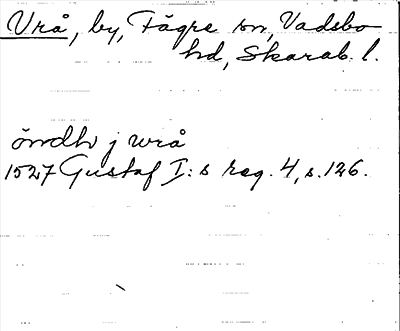 Vrå, by, Fägre sn, Vadsbo
hd, Skarab. l.
i wrå
1527 Gustaf I:s reg. 4, s. 126.